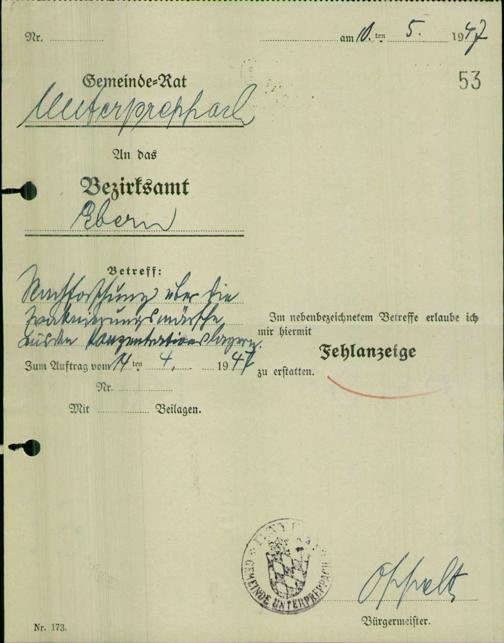 Nr.
am 10. ten 5. 1947
53
Gemeinde-Rat
Unterpreppach
An das
Bezirksamt
Ebern
Betreff:
Nachforschung über die
Evakuierungsmärsche
aus den Konzentrationslagern.
Zum Auftrag vom 14 ten 4. 1947
Nr.
Mit Beilagen.
Im nebenbezeichnetem Betreffe erlaube ich
mir hiermit
Fehlanzeige
zu erstatten.
GEMEINDE UNTERPREPPACH
Oppelt
Bürgermeister.
Nr. 173.